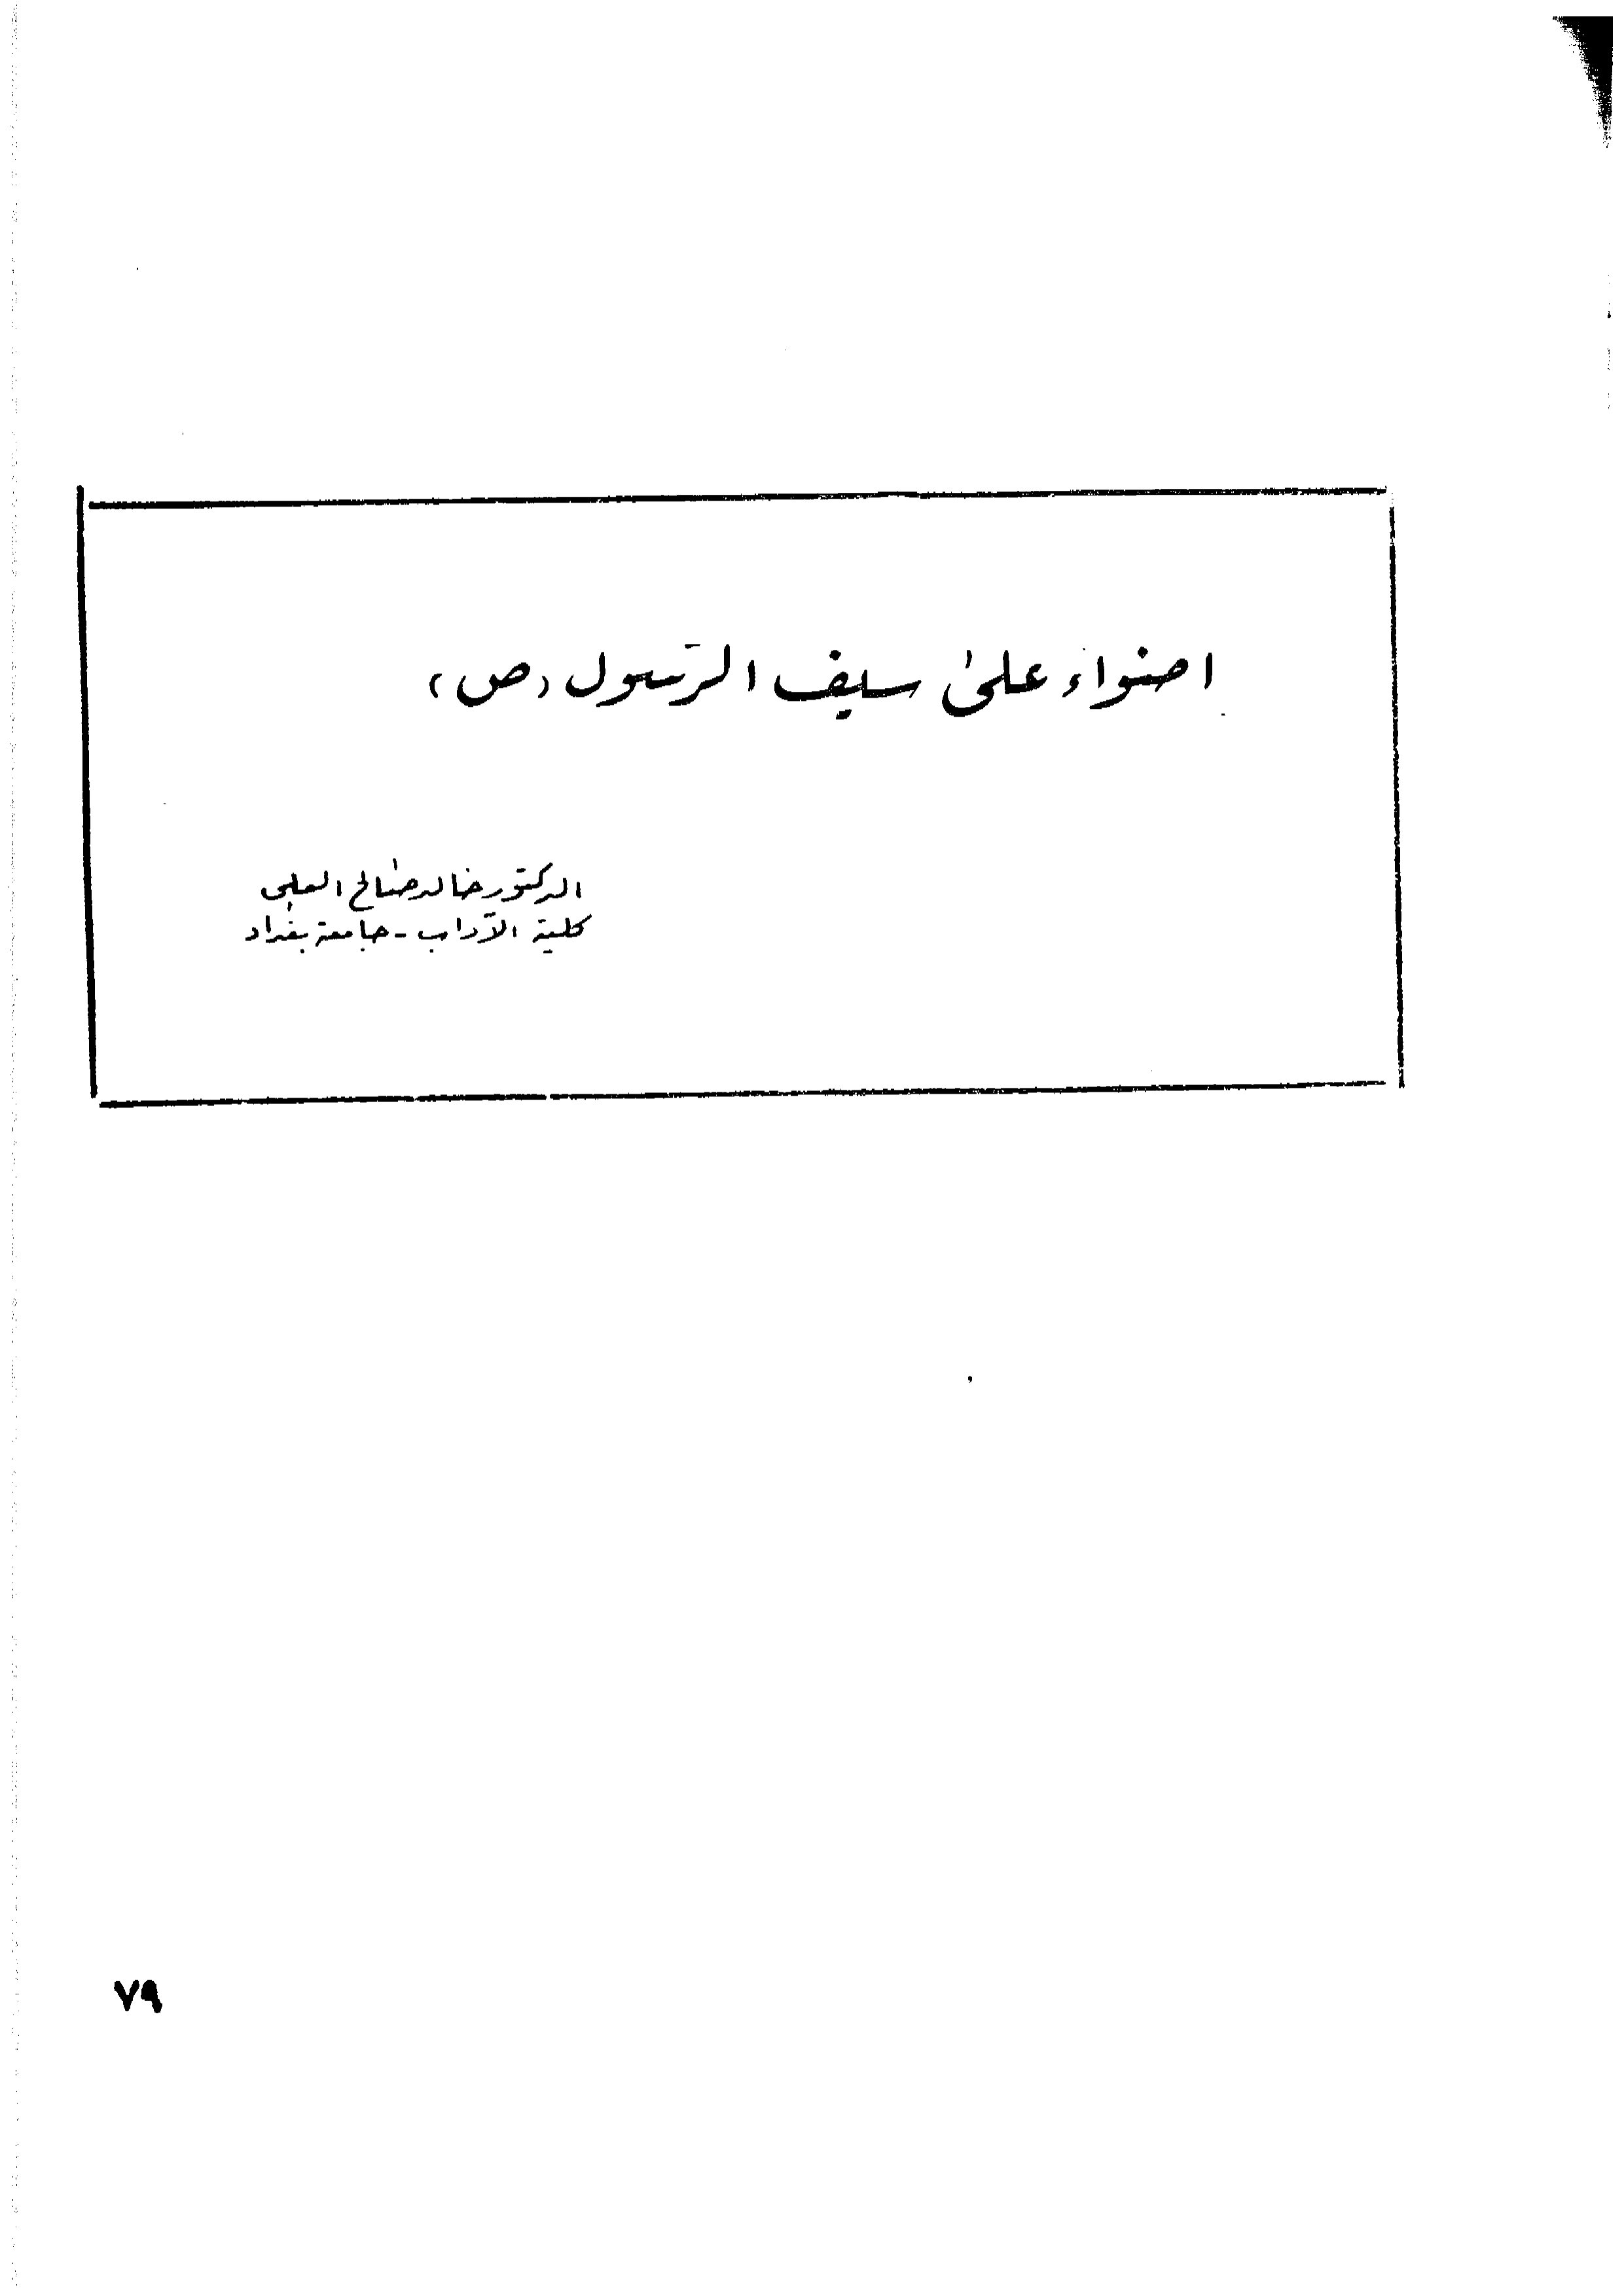 اضواء على سيف الرسول (ص)
الدكتور خالد صالح العلي
كلية الآداب - جامعة بغداد
٧٩